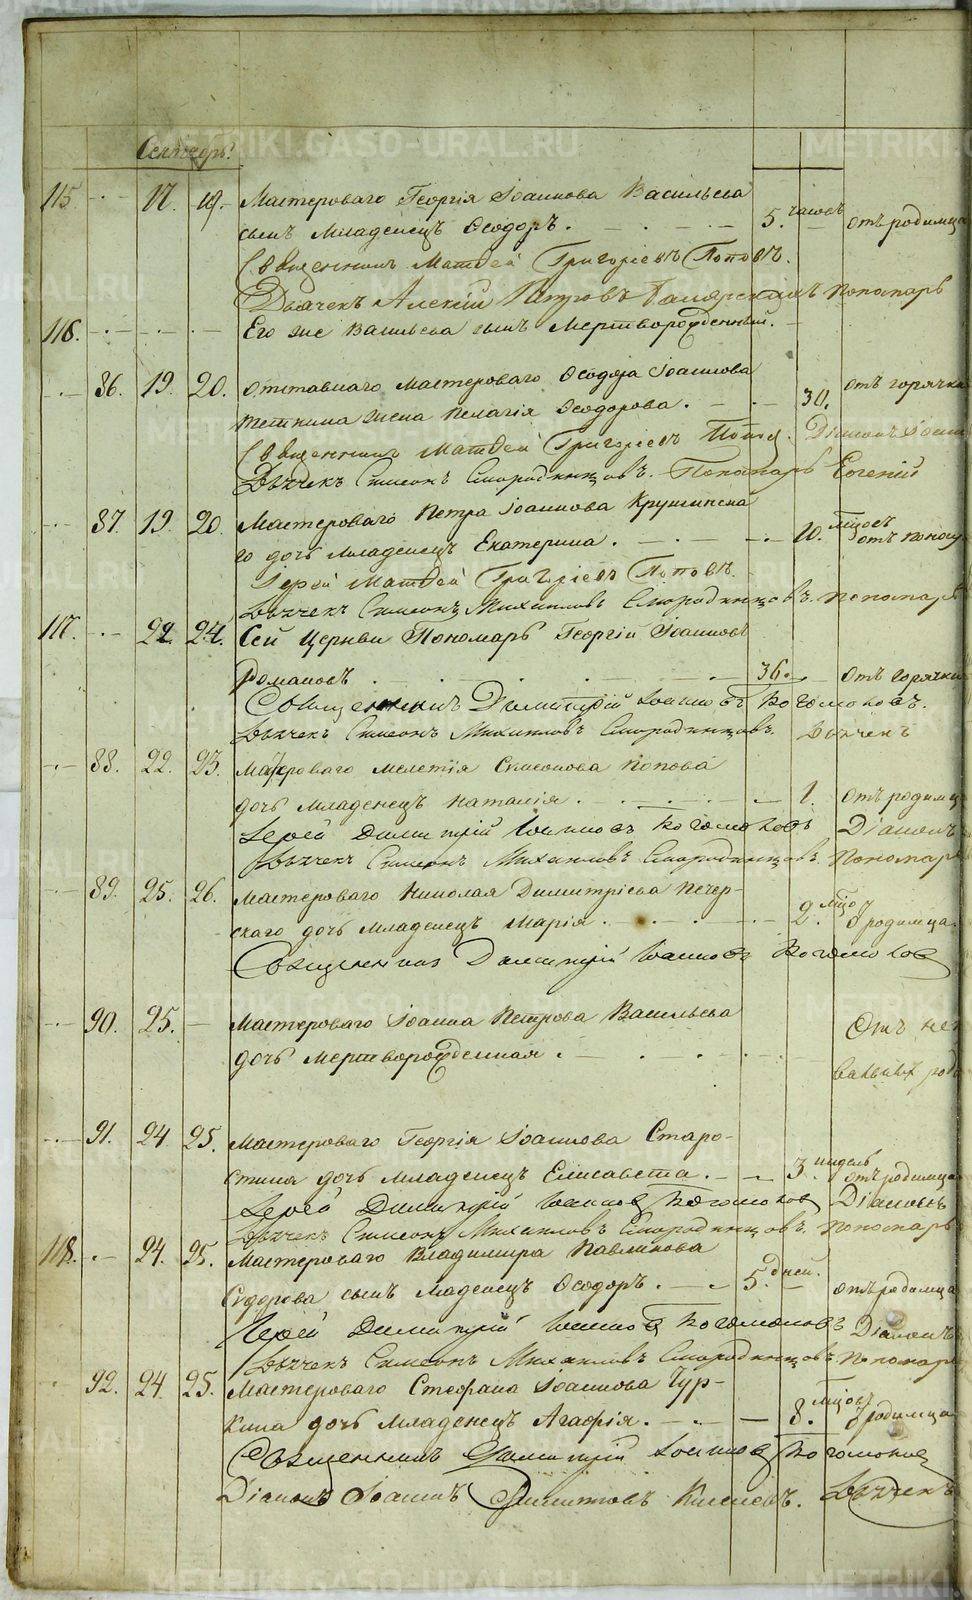 METRIKI.GASO-URAL.RU
Сентябрь.
115 17. 19. Мастероваго Георгія Іоаннова Васильева
сынъ Младенецъ Ѳеодоръ. 5. часовъ отъ родимца
Священникъ Матѳей Григоріевъ Поповъ.
Дьячекъ Алексій Петровъ пономарь
116. Его же Васильева сынъ Мертворожденный.
86. 19. 20. Отставнаго мастероваго Ѳеодора Іоаннова
жена Пелагія Ѳеодорова. 30. отъ горячки
Священникъ Матѳей Григоріевъ Поповъ. Діаконъ Іоаннъ
Дьячекъ Симеонъ Смородинцовъ. Пономарь Евгеній
87 19. 20. Мастероваго Петра Іоаннова
го дочь младенецъ Екатерина. 10. мцовъ отъ поноса
Іерей Матѳей Григоріевъ Поповъ.
Дьячекъ Симеонъ Михаиловъ Смородинцовъ. пономарь
117. 22 24. Сей Церкви Пономарь Георгій Іоанновъ
Романовъ 36. отъ горячки
Священникъ Димитрій Іоанновъ Богомоловъ.
Дьячекъ Симеонъ Михаиловъ Смородинцовъ. Дьячекъ
88. 22. 23. Мастероваго Мелетія Симеонова Попова
дочь Младенецъ Наталія. 1. отъ родимца
Іерей Димитрій Іоанновъ Богомоловъ Діаконъ
Дьячекъ Симеонъ Михаиловъ Смородинцовъ. Пономарь
89. 25. 26. Мастероваго Николая Димитріева Печер-
скаго дочь Младенецъ Марія. 2. мцовъ родимца.
Священникъ Димитрій Іоанновъ Богомоловъ
90. 25. Мастероваго Іоанна Петрова Васильева
дочь мертворожденная. Отъ
91. 24. 25. Мастероваго Георгія Іоаннова Старо-
стина дочь младенецъ Елисавета. 3. недель отъ родимца
Іерей Димитрій Іоанновъ Богомоловъ Діаконъ
Дьячекъ Симеонъ Михаиловъ Смородинцовъ. пономарь
118. 24. 25. Мастероваго Владимира Павлинова
Сидорова сынъ Маденецъ Ѳеодоръ. 5. дней. отъ родимца
Іерей Димитрій Іоанновъ Богомоловъ Діаконъ
Дьячекъ Симеонъ Михаиловъ Смородинцовъ Пономарь
92. 24. 25. Мастероваго Стефана Іоаннова Чур-
кина дочь Младенецъ Агафія. 8. мцовъ родимца
Священникъ Димитрій Іоанновъ Богомоловъ
Діаконъ Іоаннъ Дьячекъ